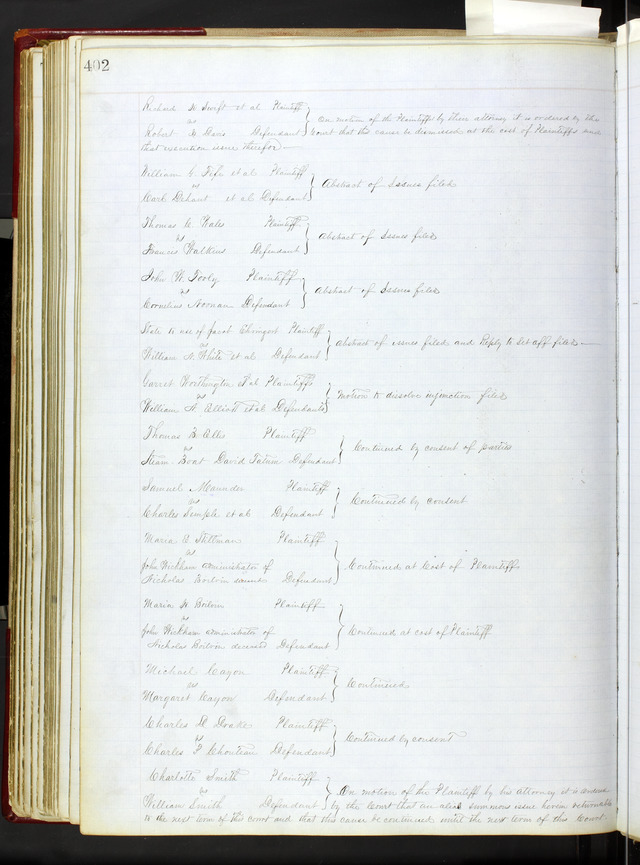 402
Richard W Swift et al Plaintiff
vs
On motion of the Plaintiffs by their attorney it is ordered by the
Robert H Davis Defendant
Court that this cause be dismissed at the cost of Plaintiffs and
that execution issue therefor
William G et al Plaintiff
vs
Abstract of Issues filed
Carl et al Defendant
Thomas Wales Plaintiff
vs
Abstract of Issues filed
Francis Watkins Defendant
John W. Plaintiff
vs
Abstract of Issues filed
Cornelius Noonan Defendant
State to use of Plaintiff
vs
Abstract of issues filed and Reply to Set off filed
William N. White et al Defendant
Garret Worthington et al Plaintiffs
vs
Motion to dissolve injunction filed
William H. Elliott et al Defendants
Thomas B. Ellis Plaintiff
vs
Continued by consent of parties
Steam Boat David Tatum Defendant
Samuel Maunder Plaintiff
vs
Continued by consent
Charles Semple et al Defendant
Maria Plaintiff
vs
John Wickham administrator of
Continued at Cost of Plaintiffs
Nicholas Boilvin Defendant
Maria Plaintiff
vs
John Wickham administrator of
Continued at cost of Plaintiff
Nicholas Boilvin deceased Defendant
Michael Cayon Plaintiff
vs
Continued
Margaret Cayon Defendant
Charles D Drake Plaintiff
vs
Continued by consent
Charles P Chouteau Defendant
Charlotte Smith Plaintiff
vs
On motion of the Plaintiff by his Attorney it is ordered
William Smith Defendant
by the Court that an alias summons issue herein returnable
to the next term of this court and that this cause be continued until the next term of this Court.